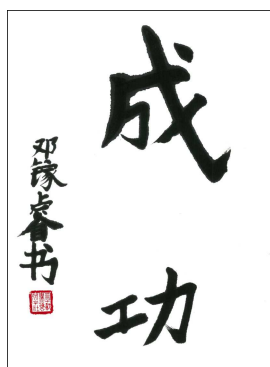 成功
邓镓睿书